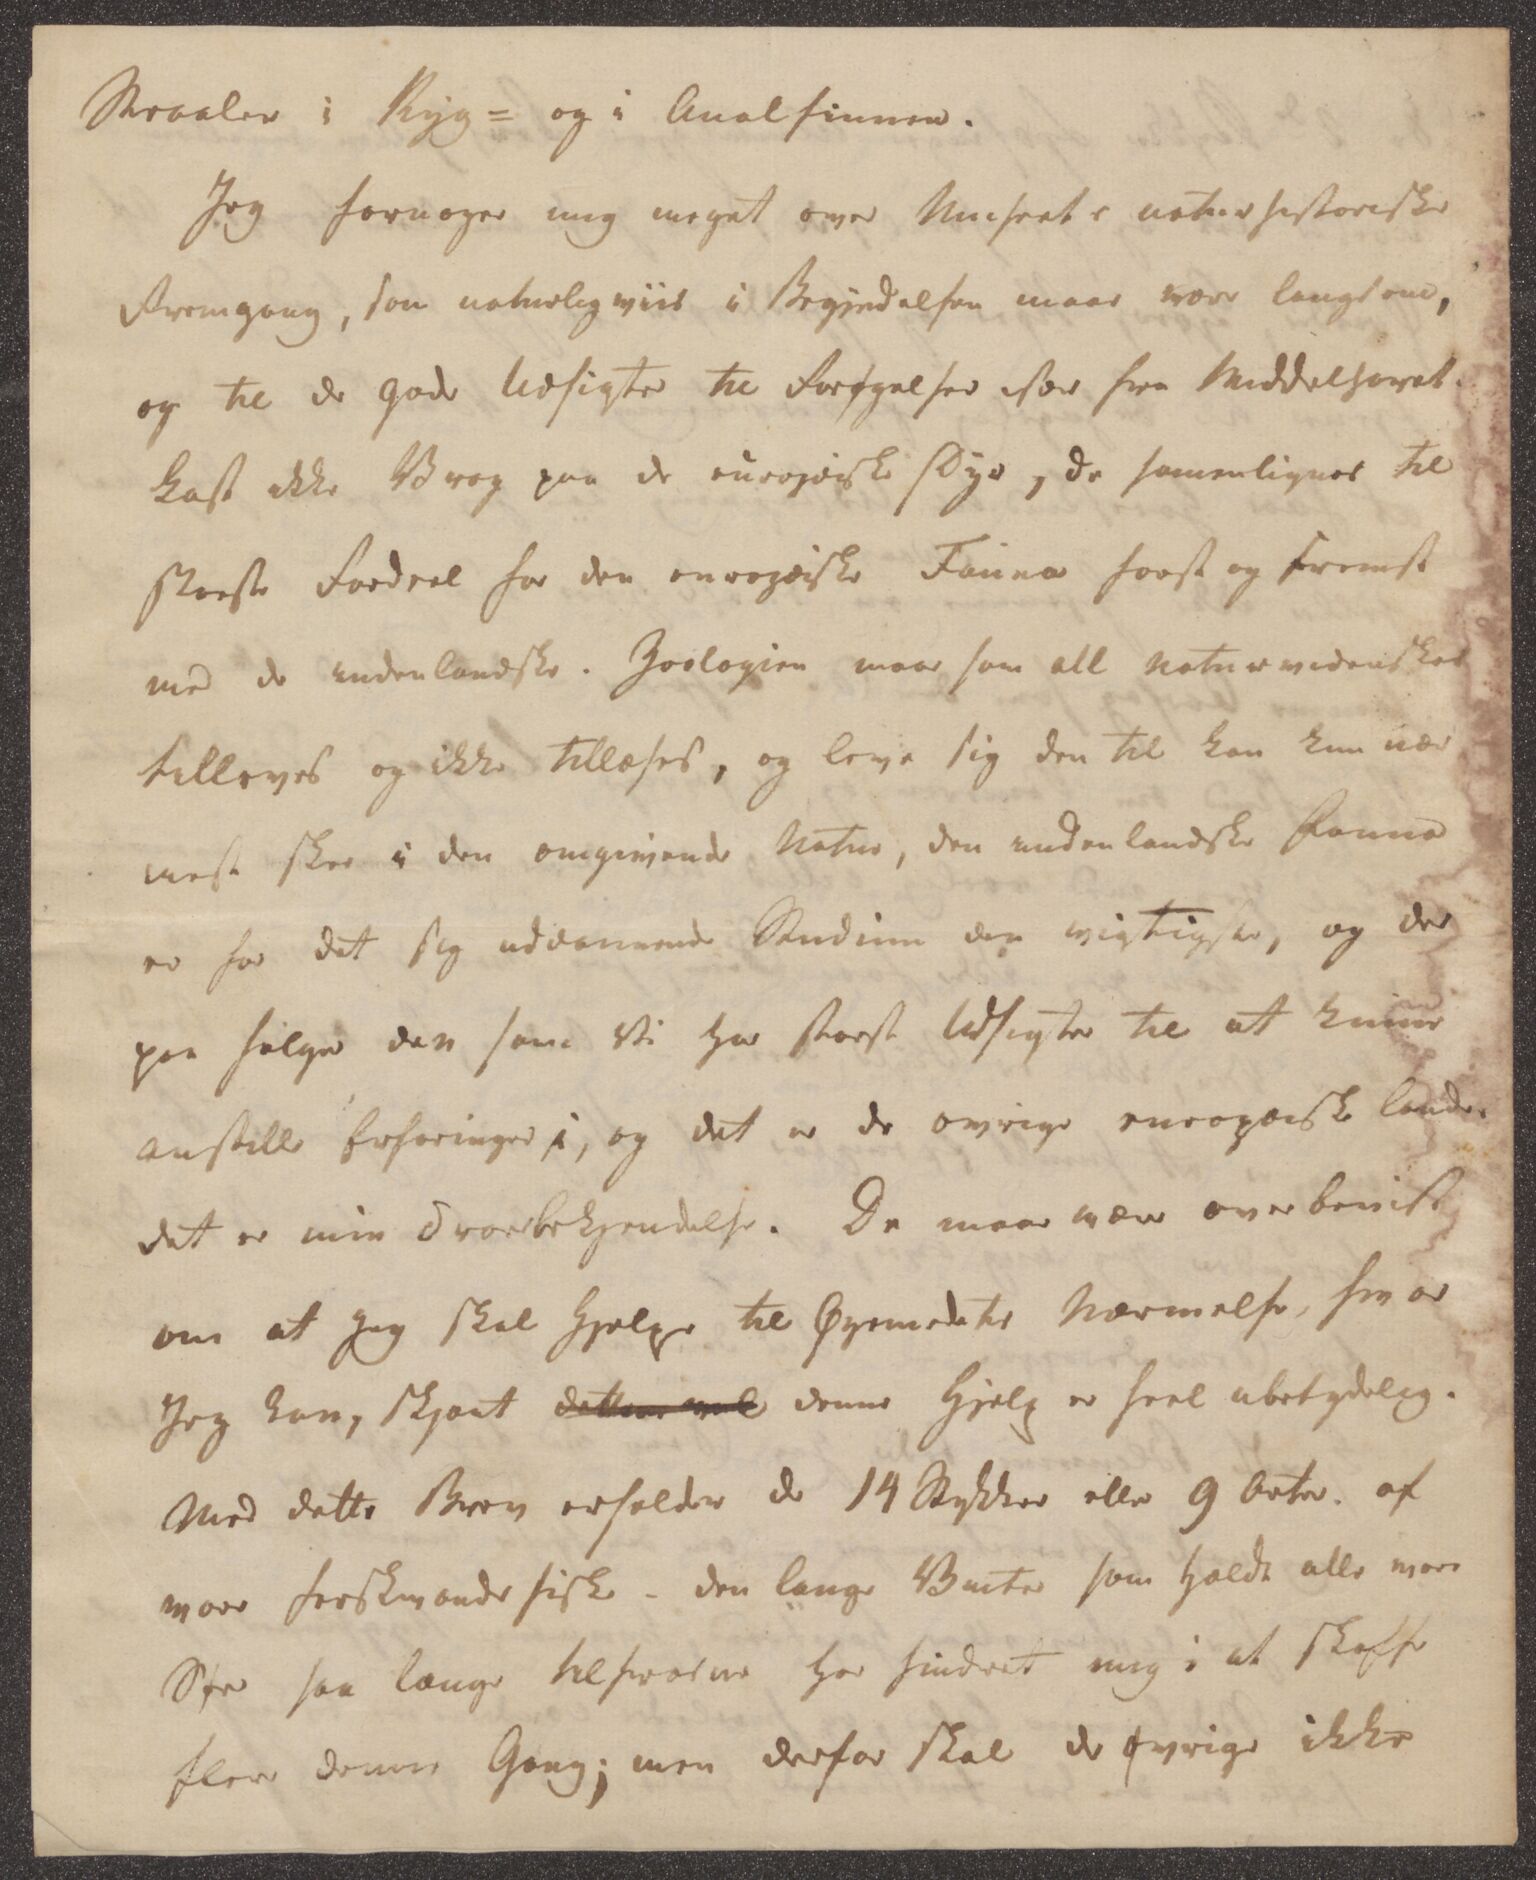 Straaler i Ryg= og i Analfinnen.
Jeg fornøyer mig meget over Museets naturhistoriske
Fremgang, som naturligviis i Begyndelsen maae være langsom,
og til de gode Udsigter til Forøgelser især fra Middelhavet.
Kast ikke Vrag paa de europæiske Dyr, de samenlignes til
største Fordeel for den europæiske Fauna først og fremst
med de indenlandske. Zoologien maae som all Naturvidenskab
tilleves og ikke tillæses, og leve sig den til kan kun nær
mest skee i den omgivende Natur, den indenlandske Fauna
er for det sig uddannende Studium den vigtigste, og der
paa følger den som Vi har størst Udsigter til at kunne
anstille Erfaringer i, og det er de øvrige europæiske Lande.
det er min Troesbekjendelse. De maae være overbeviist
om at jeg skal hjelpe til Øyemedets Nærmelse, hvor
Jeg kan, skjønt denne Hjelp er heel ubetydelig.
Med dette Brev erholder de 14 Stykker eller 9 Arter af
vore ferskvands fiske - den lange Vinter som holdt alle vore
Søer saa længe tilfrosne har hindret mig i at skaffe
flere denne Gang; men derfor skal de øvrige ikke